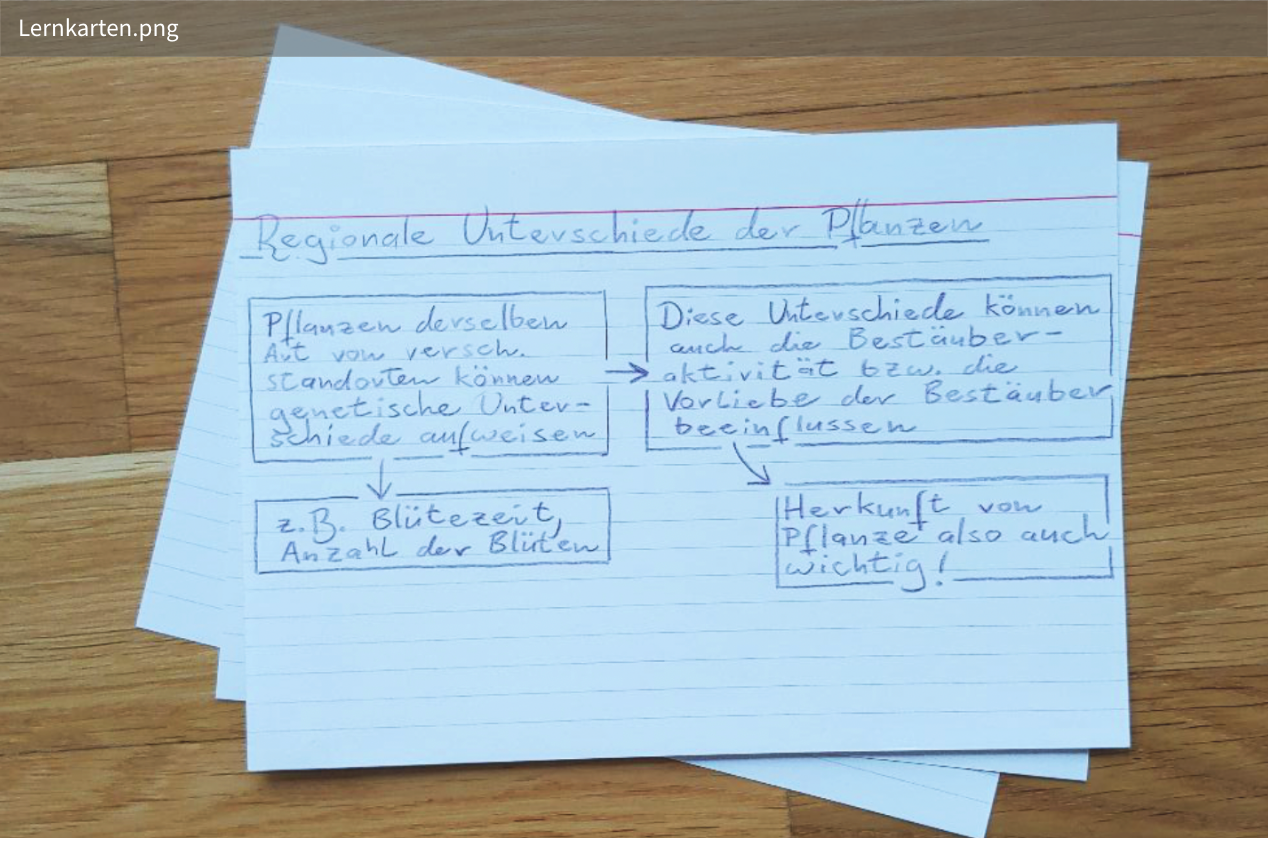 Lernkarten.png
Regionale Unterschiede der Pflanzen
Pflanzen derselben
Art von versch.
standorten können
genetische Unter-
schiede aufweisen
Diese Unterschiede können
auch die Bestäuber-
aktivität bzw. die
Vorliebe der Bestäuber
beeinflussen
z.B. Blütezeit,
Anzahl der Blüten
Herkunft von
Pflanze also auch
wichtig!